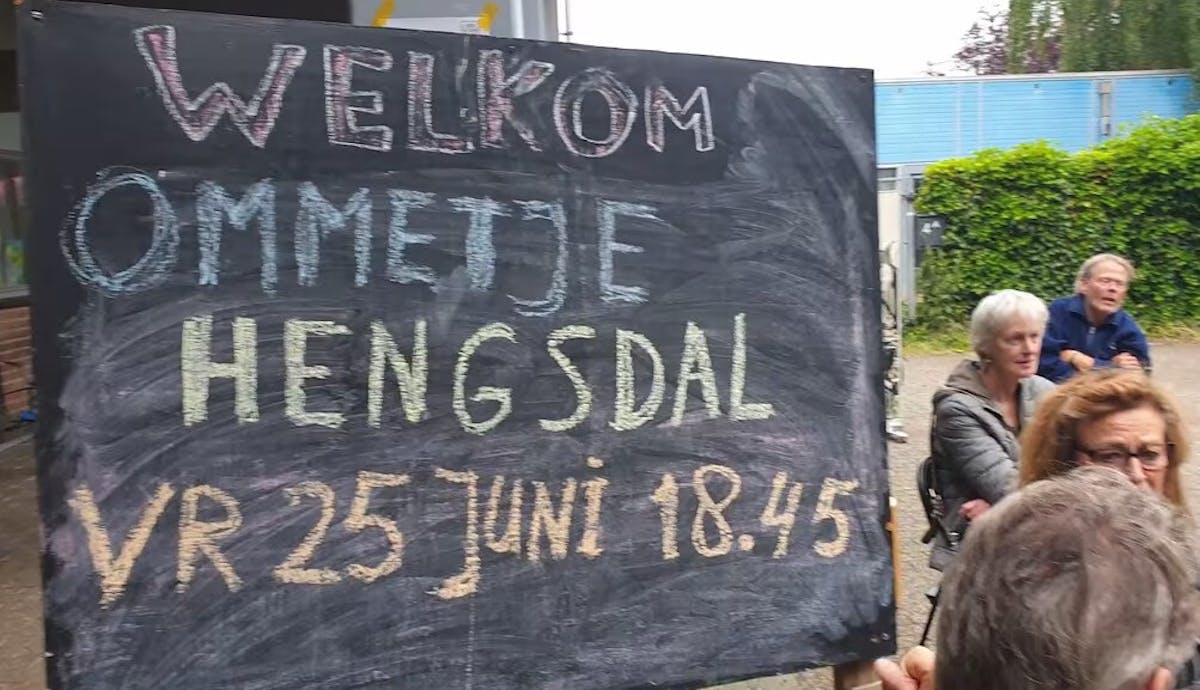 WELKOM
OMMETJE
HENGSDAL
VR 25 JUNi 18.45
4A